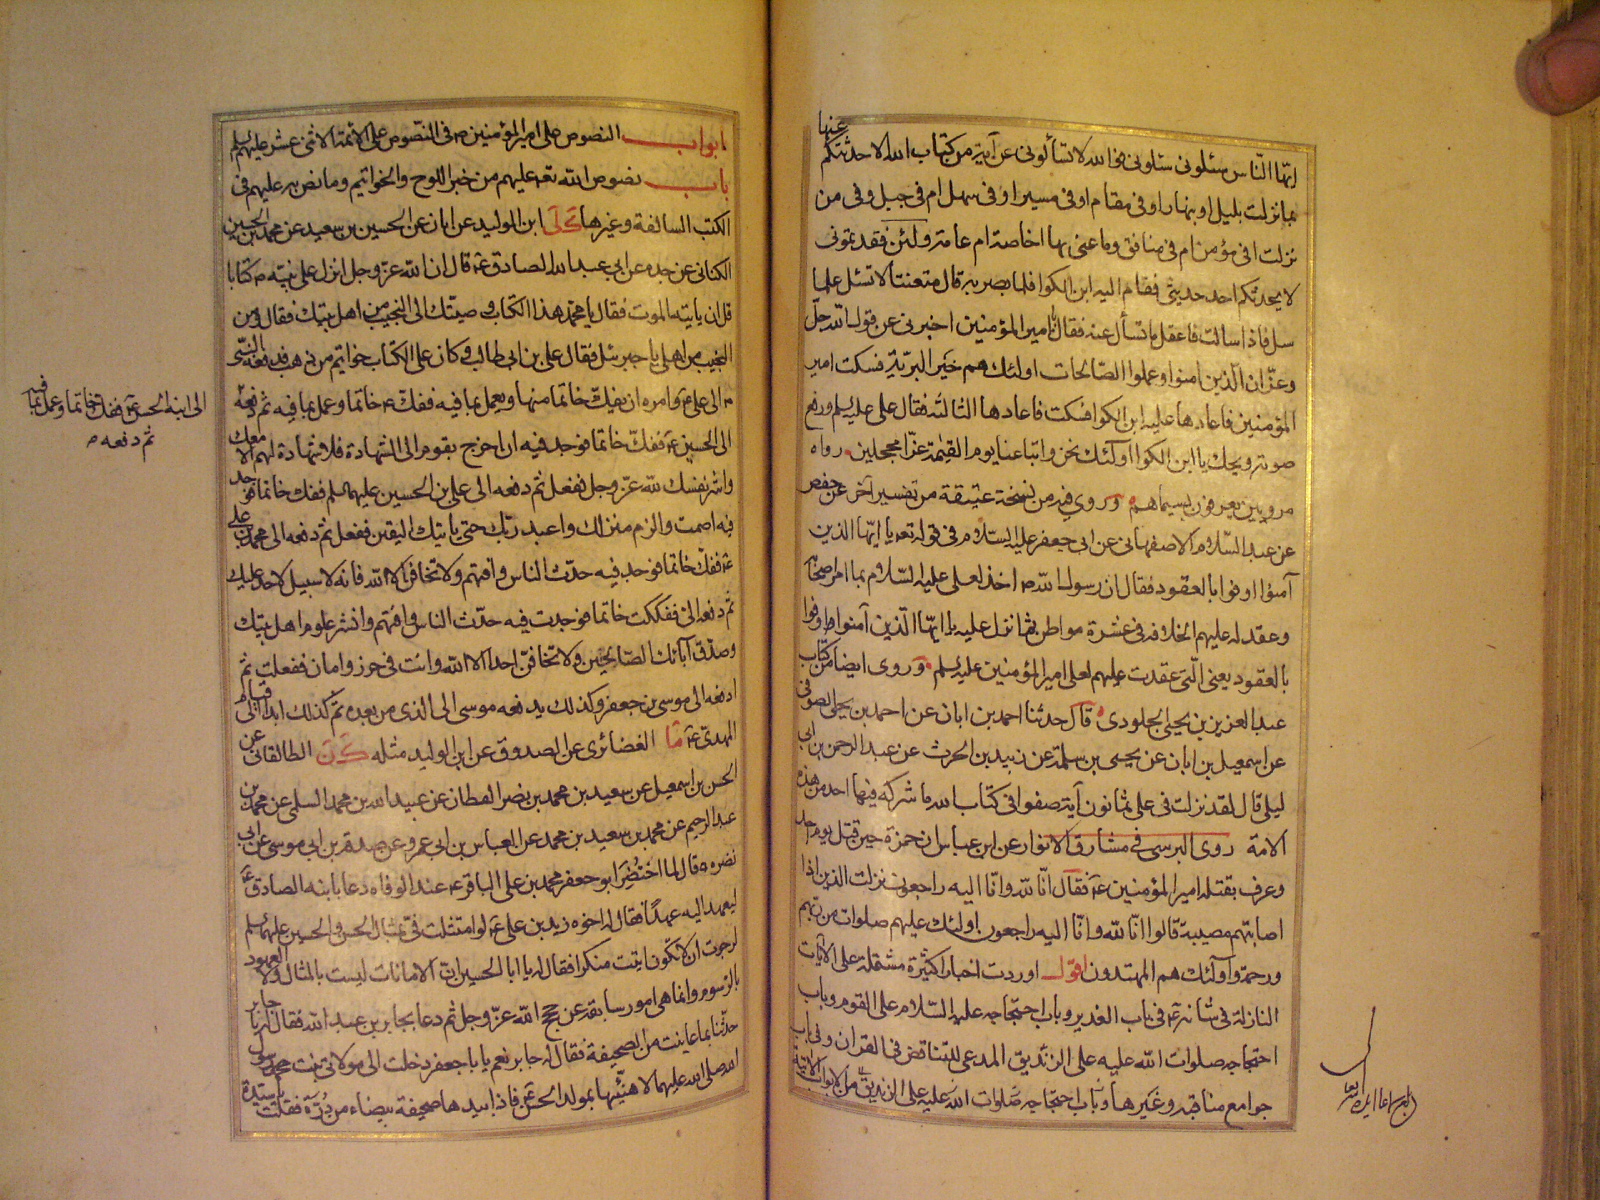 ايها الناس سلونى سلونى فو الله لا تسألونى عن آية من كتاب الله الا حدثتكم عنها
بما نزلت بليل او بنهار او فى مقام او فى مسير او فى سهل ام فى جبل وفى من
نزلت افى مؤمن ام فى منافق وما عنى بها اخاصة ام عامة ولئن فقدتمونى
لا يحدثكم احد حديثى فقام اليه ابن الكوا فلما بصر به قال متعنتا لا تسئل علما
سل فاذا سالت فاعقل ما تسأل عنه فقال يا امير المؤمنين اخبرنى عن قول الله جل
وعز ان الذين امنوا وعملوا الصالحات اولئك هم خير البرية فسكت امير
المؤمنين فاعادها عليه ابن الكوا فسكت فاعادها الثالثة فقال على عليه السلم ورفع
صوته ويحك يا ابن الكوا اولئك نحن واتباعنا يوم القيمة غرا محجلين رواه
مرويين يعرفون بسيماهم وروى فيه من نسخة عتيقة من تفسير آخر عن حفص
عن عبد السلام الاصفهانى عن ابى جعفر عليه السلام فى قوله تعه يا ايها الذين
آمنوا اوفوا بالعقود فقال ان رسول الله ص اخذ لعلى عليه السلام بما امر اصحابه
وعقد له عليهم الخلافة فى عشرة مواطن ثم انزل عليه يا ايها الذين آمنوا اوفوا
بالعقود يعنى التى عقدت عليهم لعلى امير المؤمنين عليه السلم وروى ايضا من كتاب
عبد العزيز بن يحيى الجلودى قال حدثنا احمد بن ابان عن احمد بن يحيى الصوفى
عن اسمعيل بن ابان عن يحيى بن سلمة عن زبيد بن الحرث عن عبد الرحمن بن ابى
ليلى قال لقد نزلت فى على ثمانون آية صفوا فى كتاب الله ما شركه فيها احد من هذه
الامة روى البرسى فى مشارق الانوار عن ابن عباس ان حمزة حين قتل يوم احد
وعرف بقتله امير المؤمنين ع فقال انا لله وانا اليه راجعون نزلت الذين اذا
اصابتهم مصيبة قالوا انا لله وانا اليه راجعون اولئك عليهم صلوات من ربهم
ورحمة واولئك هم المهتدون اقول اوردت اخبارا كثيرة مشتملة على الآيات
النازلة فى شانه ع فى باب الغدير وباب احتجاجه عليه السلام على القوم وباب
احتجاجه صلوات الله عليه على الزنديق المدعى للتناقض فى القران وفى باب
جوامع مناقبه وغيرها وباب احتجاجه صلوات الله عليه على الزنديق من الابواب الآتية
ابواب النصوص على امير المؤمنين ص فى النصوص على الائمة الاثنى عشر عليهم السلم
باب نصوص الله تعه عليهم من خبر اللوح والخواتيم وما نص به عليهم فى
الكتب السالفة وغيرها ابن الوليد عن ابان عن الحسين بن سعيد عن محمد بن الحسين
الكنانى عن جده عن ابى عبد الله الصادق ع قال ان الله عز وجل انزل على نبيه ص كتابا
قبل ان ياتيه الموت فقال يا محمد هذا الكتاب وصيتك الى النجيب من اهل بيتك فقال ومن
النجيب من اهلى يا جبرئيل فقال على بن ابى طالب وكان على الكتاب خواتيم من ذهب فدفعه النبى
ص الى على ع وامره ان يفك خاتما منها ويعمل بما فيه ففك ع خاتما وعمل بما فيه ثم دفعه
الى ابنه الحسن ع ففك خاتما وعمل بما فيه
ثم دفعه ص
الى الحسين ع ففك خاتما فوجد فيه ان اخرج بقوم الى الشهادة فلا شهادة لهم الا معك
واشر نفسك لله عز وجل ففعل ثم دفعه الى على بن الحسين عليهما السلم ففك خاتما فوجد
فيه اصمت والزم منزلك واعبد ربك حتى ياتيك اليقين ففعل ثم دفعه الى محمد بن على
ع ففك خاتما فوجد فيه حدث الناس وافتهم ولا تخافن الا الله فانه لا سبيل لاحد عليك
ثم دفعه الى ففككت خاتما فوجدت فيه حدث الناس وافتهم وانشر علوم اهل بيتك
وصدق آبائك الصالحين ولا تخافن احدا الا الله وانت فى حرز وامان ففعلت ثم
ادفعه الى موسى بن جعفر وكذلك يدفعه موسى الى الذى من بعده ثم كذلك ابدا الى قيام
المهدى ع ما الغضائرى عن الصدوق عن ابن الوليد مثله ك ن الطالقانى عن
الحسن بن اسمعيل عن سعيد بن محمد بن نصر القطان عن عبيد الله بن محمد السلمى عن محمد بن
عبد الرحيم عن محمد بن سعيد بن محمد عن العباس بن ابى عمرو عن صدقة بن ابى موسى عن ابى
نضره قال لما احتضر ابو جعفر محمد بن على الباقر ع عند الوفاه دعا بابنه الصادق ع
ليعهد اليه عهدا فقال له اخوه زيد بن على ع لو امتثلت فى تمثال الحسن والحسين عليهما السلم
لرجوت ان لا تكون اتيت منكرا فقال له يا ابا الحسين ان الامانات ليست بالمثال ولا العهود
بالرسوم وانما هى امور سابقة عن حجج الله عز وجل ثم دعا بجابر بن عبد الله فقال له يا جابر
حدثنا بما عاينت من الصحيفة فقال له جابر نعم يا با جعفر دخلت الى مولاتى بنت محمد رسول
الله صلى الله عليهما لاهنئها بمولد الحسن ع فاذا بيدها صحيفة بيضاء من درة فقلت يا سيدة